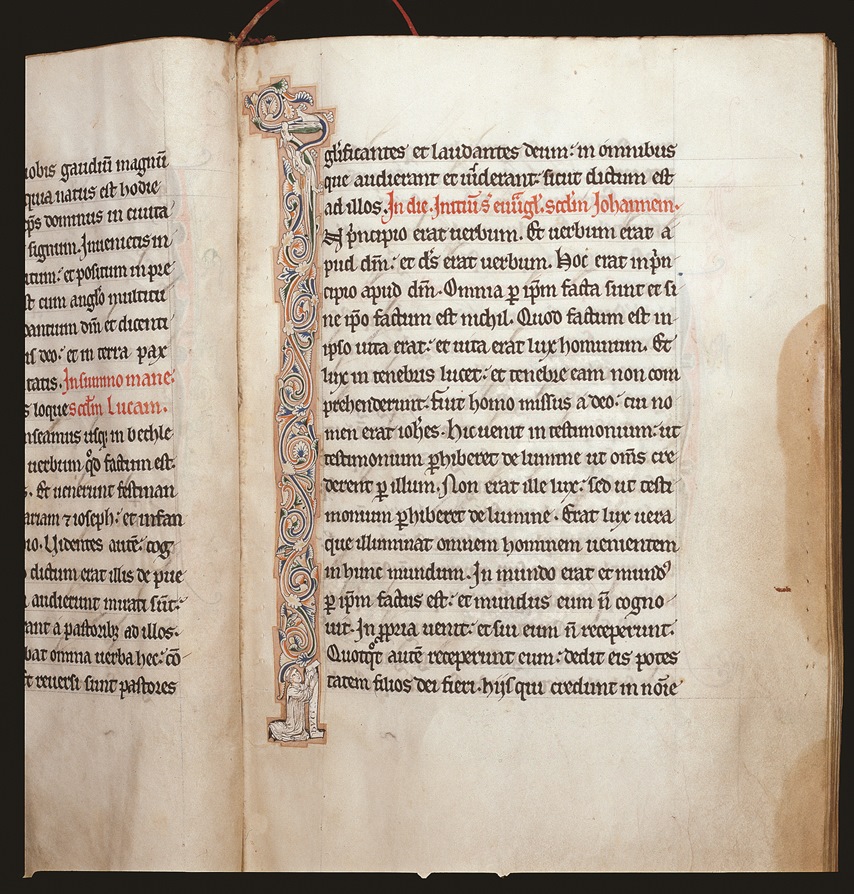 obis gaudiū magnū
quia natus est hodie
xp̄s dominus in ciuita
signum. Inuenietis in
utum: et positum in pre
st cum anglo multitu
dantium dm̄ et dicenti
is deo: et in terra pax
tatis. In summo mane:
s loque scd̄m Lucam.
nseamus usq; in bethle
uerbum qd̄ factum est.
s. Et uenerunt festinan
ariam ⁊ ioseph: et infan
io. Videntes autē: cog
dictum erat illis de pue
audierunt mirati sūt:
rant a pastorib; ad illos.
bat omnia uerba hec: cō
t reuersi sunt pastores
glīficantes et laudantes deum: in omnibus
que audierant et uiderant: sicut dictum est
ad illos. In die. Initiū sc̄i euuāgl̄. scd̄m Johannem.
N pͥncipio erat uerbum. Et uerbum erat a
pud dm̄: et ds̄ erat uerbum. Hoc erat in pͥn
cipio apud dm̄. Omnia p̲ ip̄m facta sunt et si
ne ip̄o factum est nichil. Quod factum est in
ipso uita erat: et uita erat lux hominum. Et
lux in tenebris lucet: et tenebre eam non com
prehenderunt. Fuit homo missus a deo: cui no
men erat ioh̄es. Hic uenit in testimonium: ut
testimonium p̲hiberet de lumine ut om̄s cre
derent p̲ illum. Non erat ille lux: sed ut testi
monium p̲hiberet de lumine. Erat lux uera
que illuminat omnem hominem uenientem
in hunc mundum. In mundo erat et mundꝰ
p̲ ip̄m factus est: et mundus eum n̄ cogno
uit. In ꝓpria uenit: et sui eum n̄ receperunt.
Quotqͦt autē receperunt eum: dedit eis potes
tatem filios dei fieri. hijs qui credunt in noīe